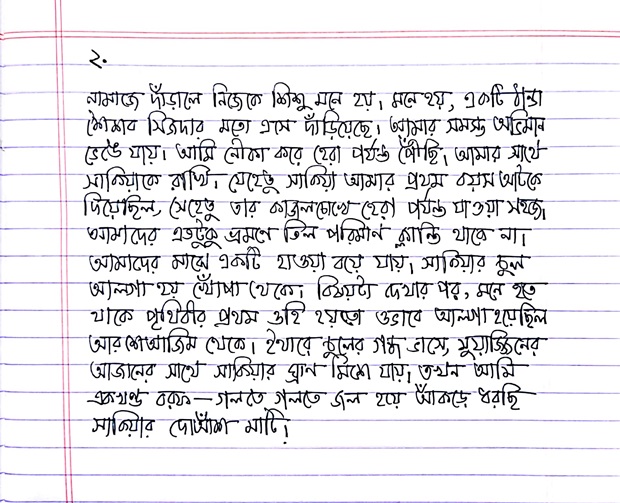 ২.
নামাজে দাঁড়ালে নিজেকে শিশু মনে হয়। মনে হয়, একটি ঠান্ডা
শৈশব সিজদার মতো এসে দাঁড়িয়েছে। আমার সমস্ত অভিমান
ভেঙে যায়। আমি নৌকা করে হেরা পর্যন্ত পৌঁছি। আমার সাথে
সাকিয়াকে রাখি। যেহেতু সাকিয়া আমার প্রথম বয়স আটকে
দিয়েছিল, সেহেতু তার কাজলচোখে হেরা পর্যন্ত যাওয়া সহজ।
আমাদের এতটুকু ভ্রমণে তিল পরিমাণ ক্লান্তি থাকে না।
আমাদের মাঝে একটি হাওয়া বয়ে যায়। সাকিয়ার চুল
আলগা হয় খোঁপা থেকে। বিষয়টা দেখার পর, মনে হতে
থাকে পৃথিবীর প্রথম ওহি হয়তো ওভাবে আলগা হয়েছিল
আরশে আজিম থেকে। ইথারে চুলের গন্ধ ভাসে, মুয়াজ্জিনের
আজানের সাথে সাকিয়ার ঘ্রাণ মিশে যায়। তখন আমি
একখণ্ড বরফ—গলতে গলতে জল হয়ে আঁকড়ে ধরছি
সাকিয়ার দোআঁশ মাটি।